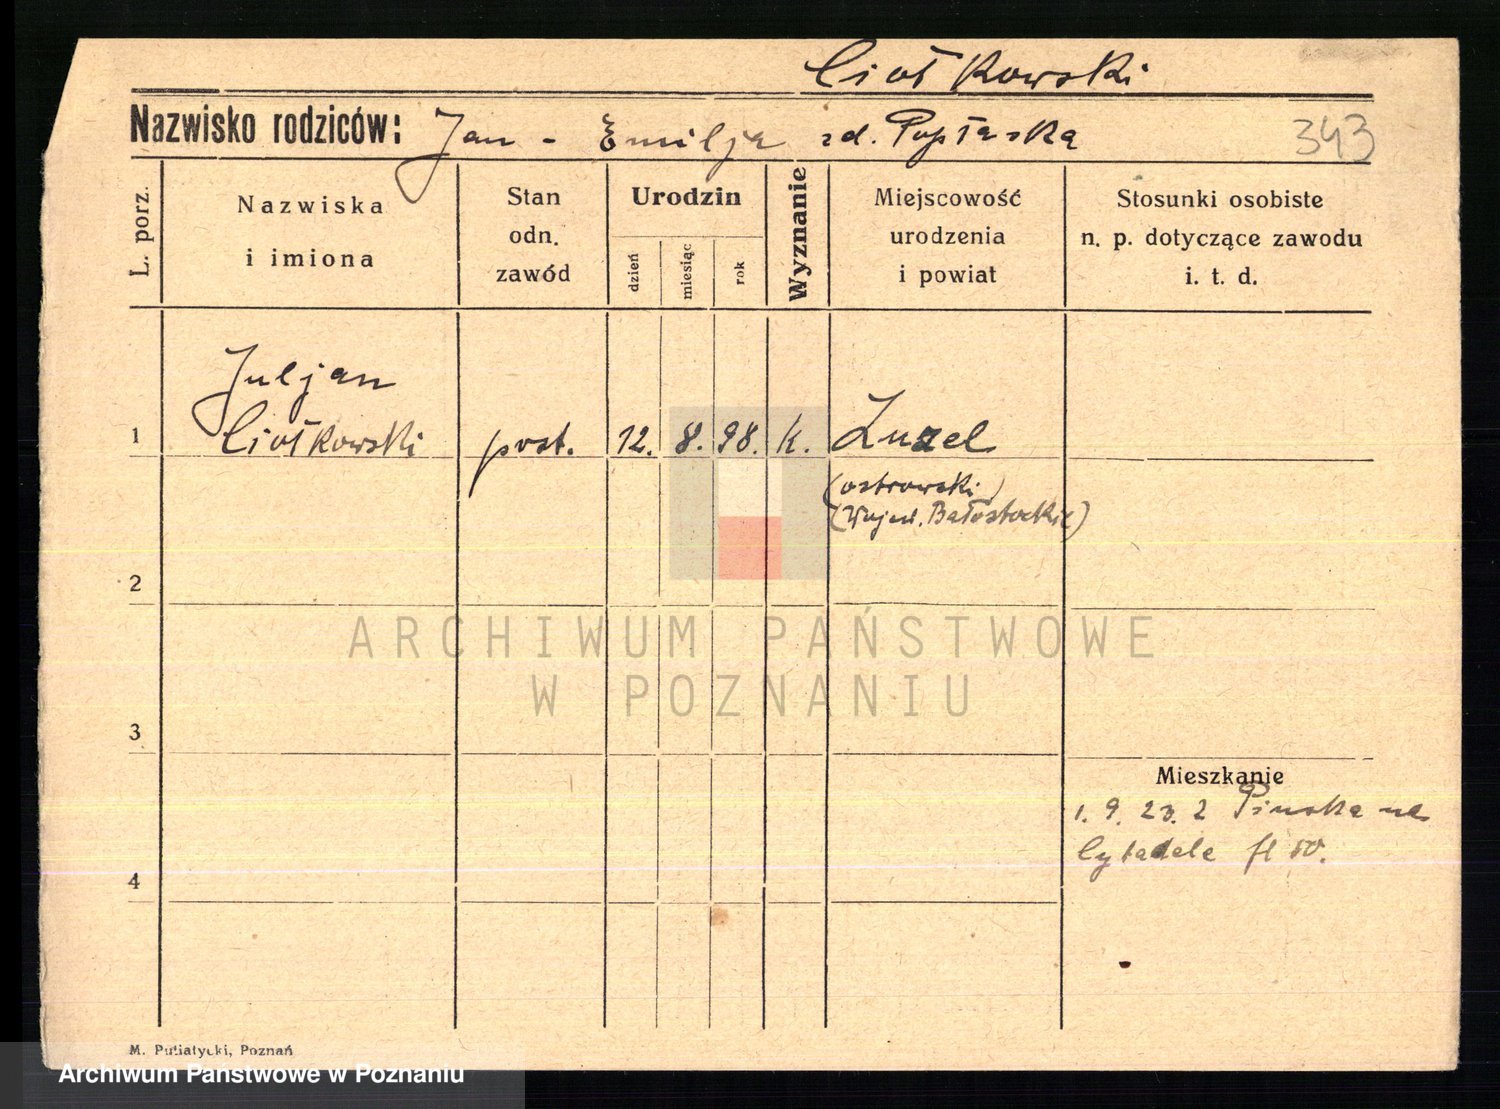 Ciołkowski
Nazwisko rodziców: Jan - Emilja zd. 343
L. porz.
Nazwiska
i imiona
Stan
odn.
zawód
Urodzin
dzień
miesiąc
rok
Wyznanie
Miejscowość
urodzenia
i powiat
Stosunki osobiste
n. p. dotyczące zawodu
i. t. d.
Juljan
1 Ciołkowski post. 12. 8. 98. k. Zuzel
(ostrowski)
(Wojew. Białostockie)
2
ARCHIWUM PAŃSTWOWE
W POZNANIU
3
Mieszkanie
1. 9. 23. z Pinska na
Cytadele
4
M. Putiatycki, Poznań
Archiwum Państwowe w Poznaniu